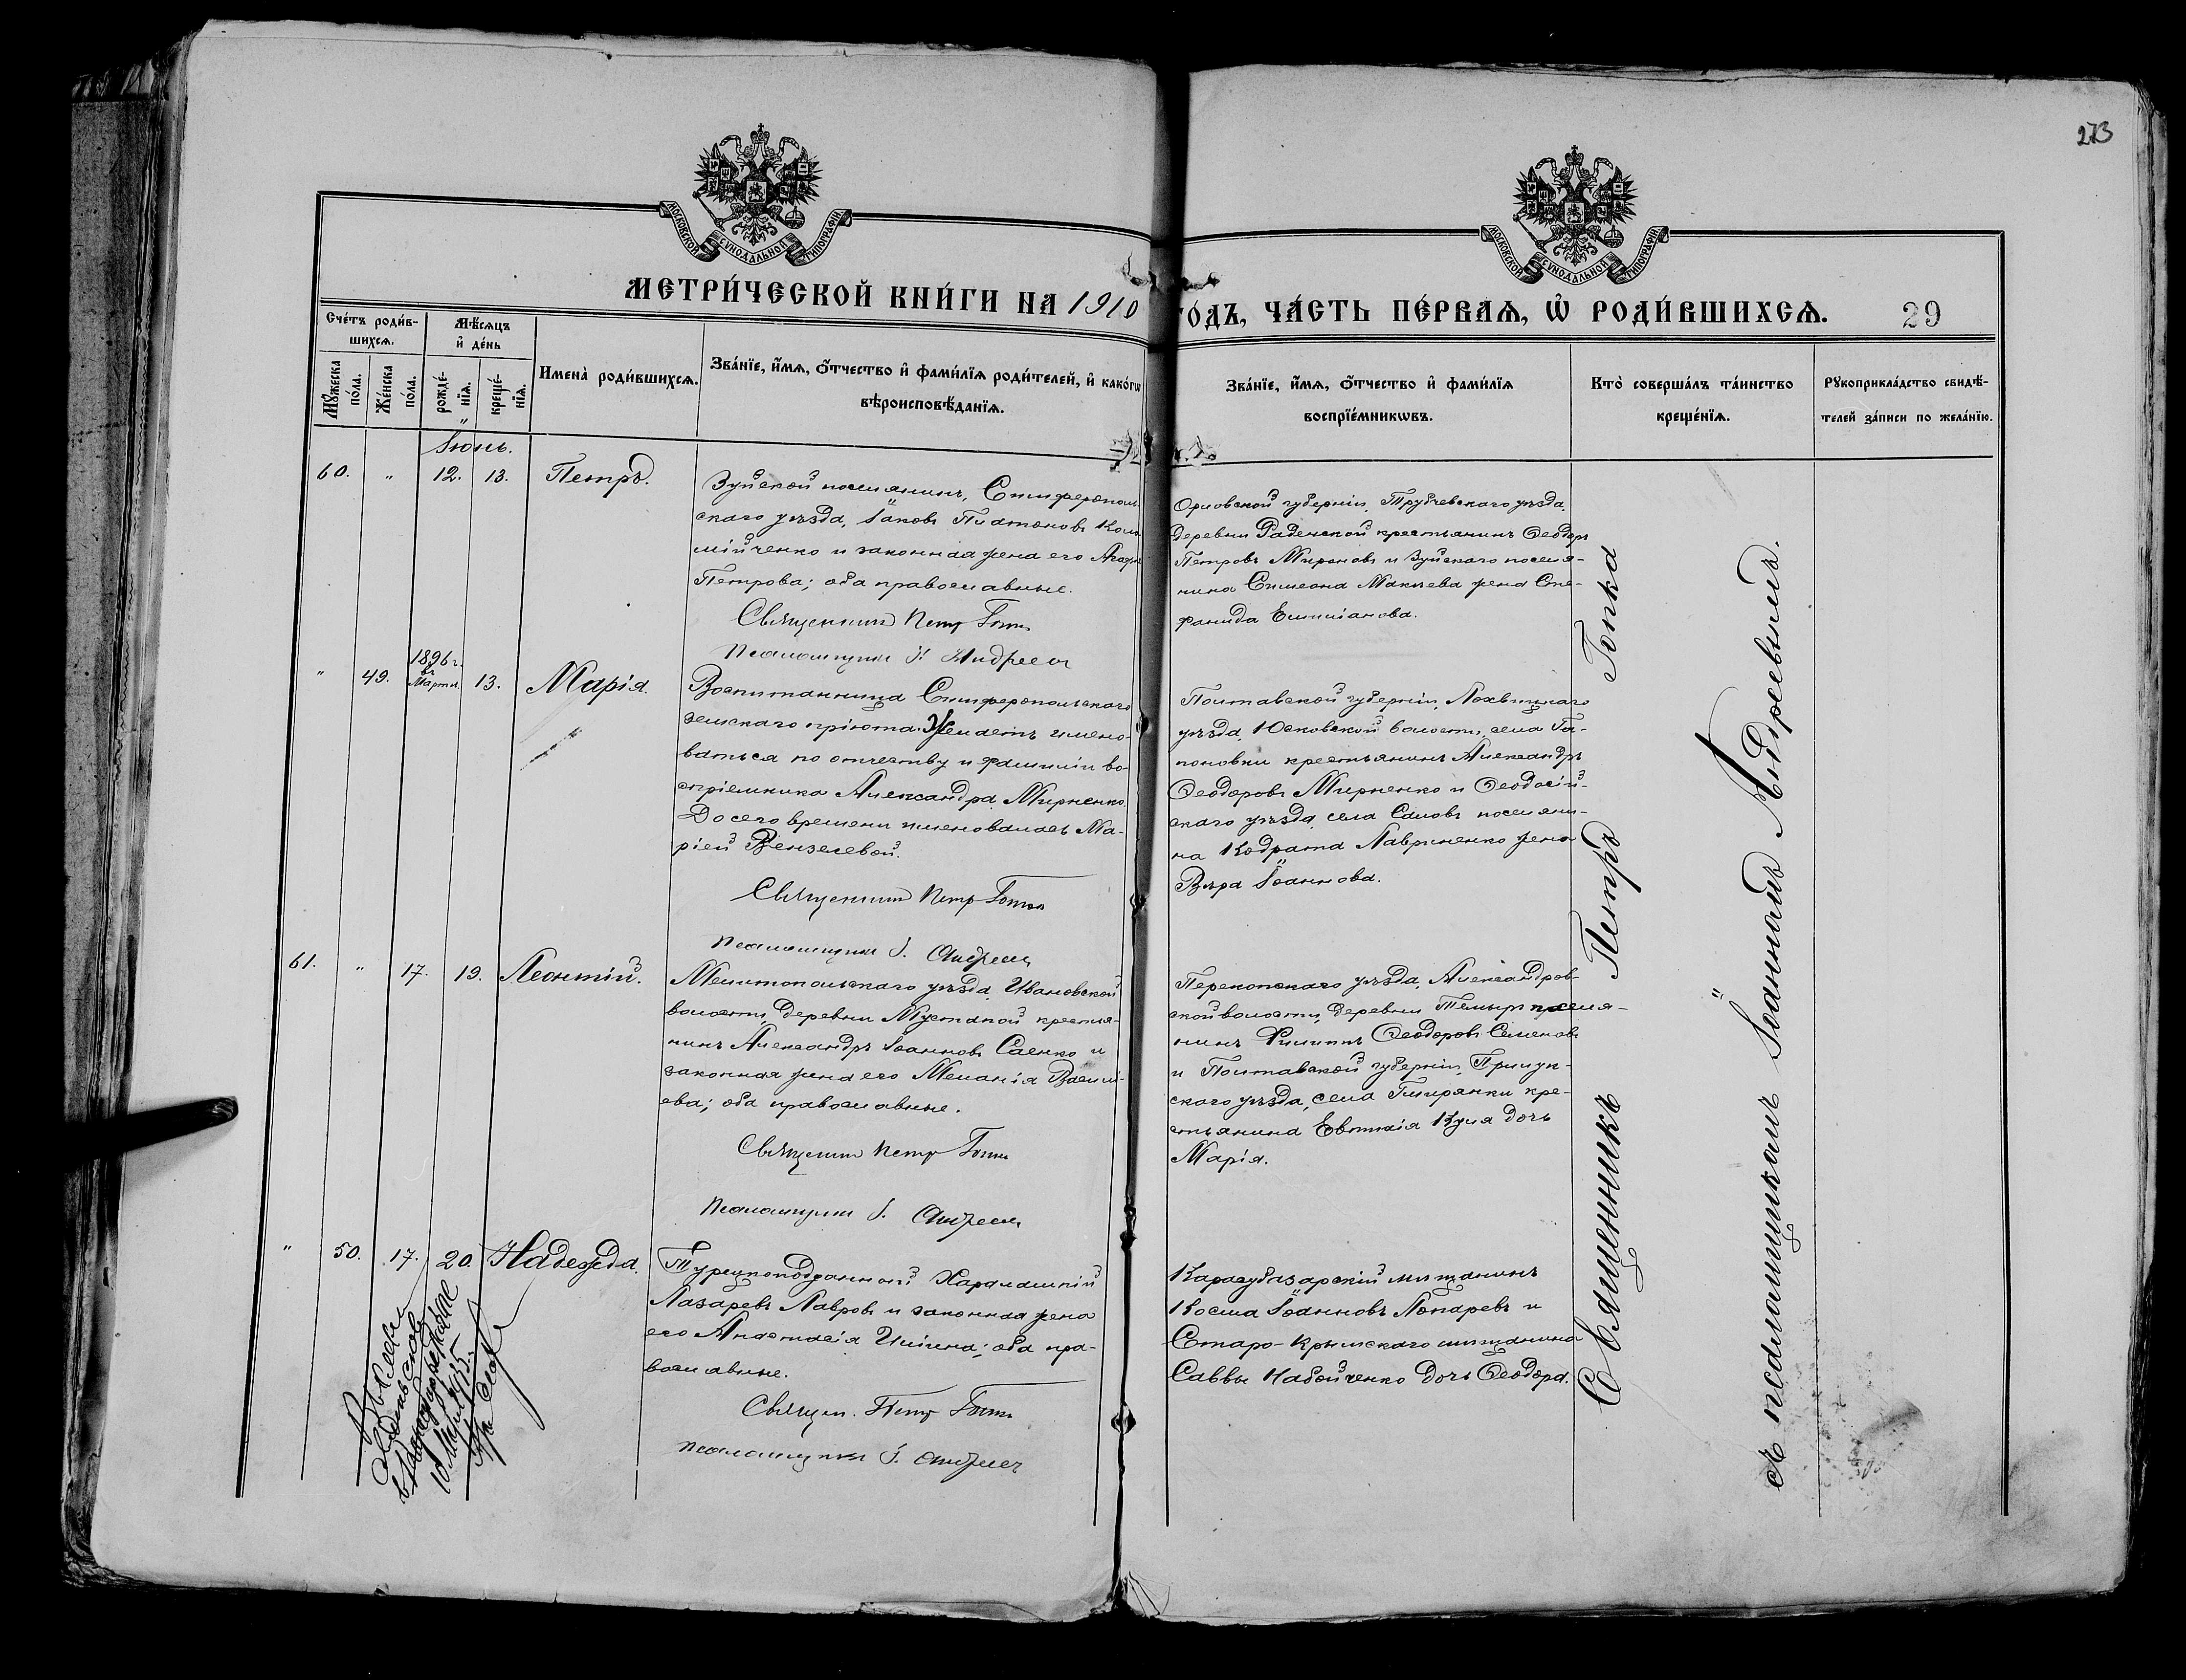 273
МОСКОВСКОЙ СѴНОДАЛЬНОЙ ТИПОГРАФІИ
МОСКОВСКОЙ СѴНОДАЛЬНОЙ ТИПОГРАФІИ
МЕТРИ́ЧЕСКОЙ КНИ́ГИ НА 1910 ГОДЪ, ЧА́СТЬ ПЕ́РВАѦ, Ѡ҆ РОДИ́ВШИХСѦ. 29
Сче́тъ роди́в-
шихсѧ.
Мꙋ́жеска по́ла.
Же́нска по́ла.
Мѣ́сѧцъ
и҆ де́нь
рожде́-
нїѧ.
креще́-
нїѧ.
Имена̀ роди́вшихсѧ.
Зва́нїе, и҆́мѧ, ѻ҆́тчество и҆ фами́лїѧ роди́телей, и҆ како́гѡ
вѣроисповѣ́данїѧ.
Зва́нїе, и҆́мѧ, ѻ҆́тчество и҆ фами́лїѧ
воспрїе́мникѡвъ.
Кто̀ соверша́лъ та́инство
креще́нїѧ.
Рꙋкоприкла́дство свидѣ́-
телей за́писи по жела́нїю.
Іюнь.
60. " 12. 13. Петръ.
Зуйскои поселянинъ, Симферополь-
скаго уѣзда, Іаковъ Платоновъ Коло-
мійченко и законная жена его
Петрова; оба православные.
Священникъ Петръ Гопка
Псаломщикъ І. Андреевъ
Орловской губерніи, Трубчевскаго уѣзда,
деревни Раденской крестьянинъ Ѳеодоръ
Петровъ Мироновъ и Зуйскаго поселя-
нина Симеона Макѣева жена Сте-
фанида Емиліанова.
" 49. 1896 г. въ Мартѣ. 13. Марія.
Воспитанница Симферопольскаго
земскаго пріюта. Желаетъ имено-
ваться по отчеству и фамиліи во-
спріемника Александра Мирненко.
До сего времени именовалась Ма-
ріей Вензелевой.
Священникъ Петръ Гопка
Псаломщикъ І. Андреевъ
Полтавской губерніи, Лохвицкаго
уѣзда, Юсковской волости, села Га-
поновки крестьянинъ Александръ
Ѳеодоровъ Мирненко и Ѳеодосій-
скаго уѣзда, села Саловъ поселяни-
на Кодрата Лавриненко жена
Вѣра Іоаннова.
61. " 17. 19. Леонтій.
Мелитопольскаго уѣзда, Ивановской
волости, деревни Мустапой крестья-
нинъ Александръ Іоанновъ Саенко и
законная жена его Меланія Василі-
ева; оба православные.
Священникъ Петръ Гопка
Псаломщикъ І. Андреевъ
Перекопскаго уѣзда, Александров-
ской волости, деревни Темиръ поселя-
нинъ Филиппъ Ѳеодоровъ Семеновъ
и Полтавской губерніи, Прилук-
скаго уѣзда, села Гмирянки кре-
стьянина Евтихія Куля дочь
Марія.
" 50. 17. 20. Надежда.
Турецкоподданный Харалампій
Лазаревъ Лавровъ и законная жена
его Анастасія Иліина; оба пра-
вославные.
Священ. Петръ Гопка
Псаломщикъ І. Андреевъ
Карасубазарскій мѣщанинъ
Косма Іоанновъ Лопаревъ и
Старо-Крымскаго мѣщанина
Саввы Набойченко дочь Ѳеодора.
Священникъ Петръ Гопка
съ псаломщикомъ Іоанномъ Андреевымъ.